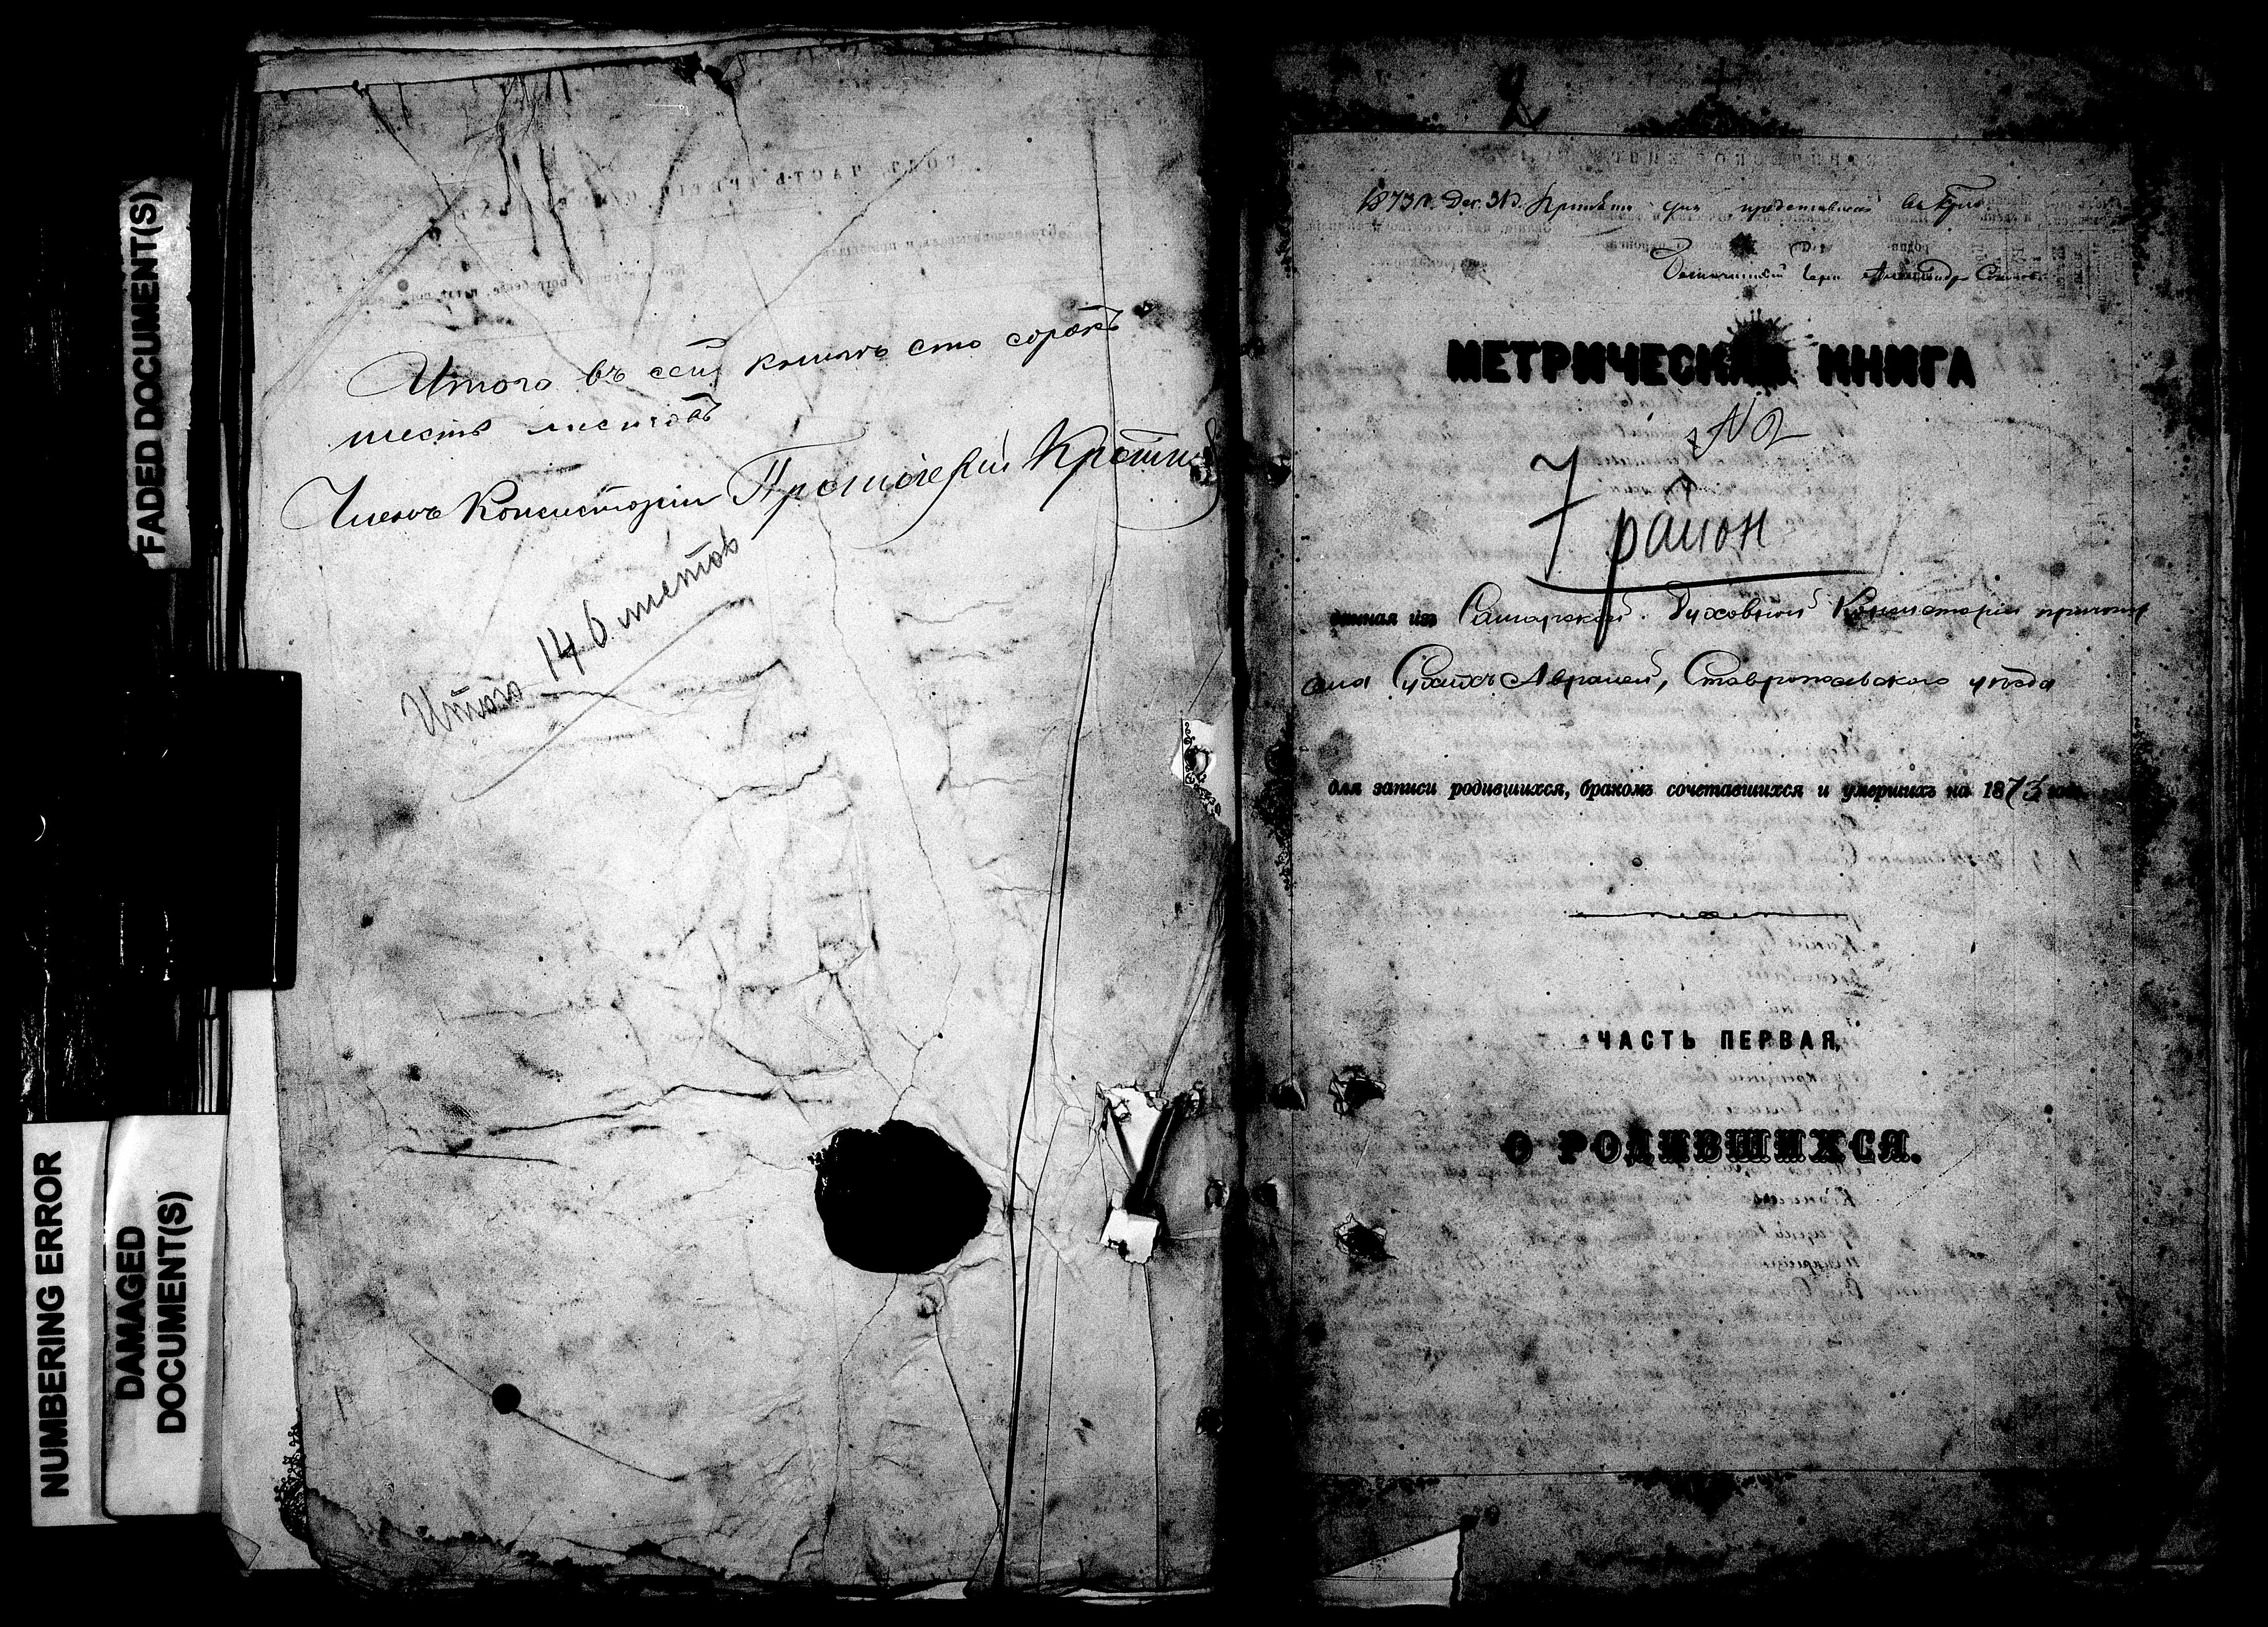 FADED DOCUMENT(S)
NUMBERING ERROR
DAMAGED
DOCUMENT(S)
Итого въ сей книгѣ сто сорокъ
шесть листовъ
Членъ Консисторіи Протоіерей
Итого 146 листов
2
1873 г. Дек. 31 д.
Александръ
МЕТРИЧЕСКАЯ КНИГА
№ 2
7 район
данная изъ Самарской Духовной Консисторіи причту
села Сухихъ Авралей, Ставропольскаго уѣзда
для записи родившихся, бракомъ сочетавшихся и умершихъ на 1873 годъ.
ЧАСТЬ ПЕРВАЯ,
О РОДИВШИХСЯ.